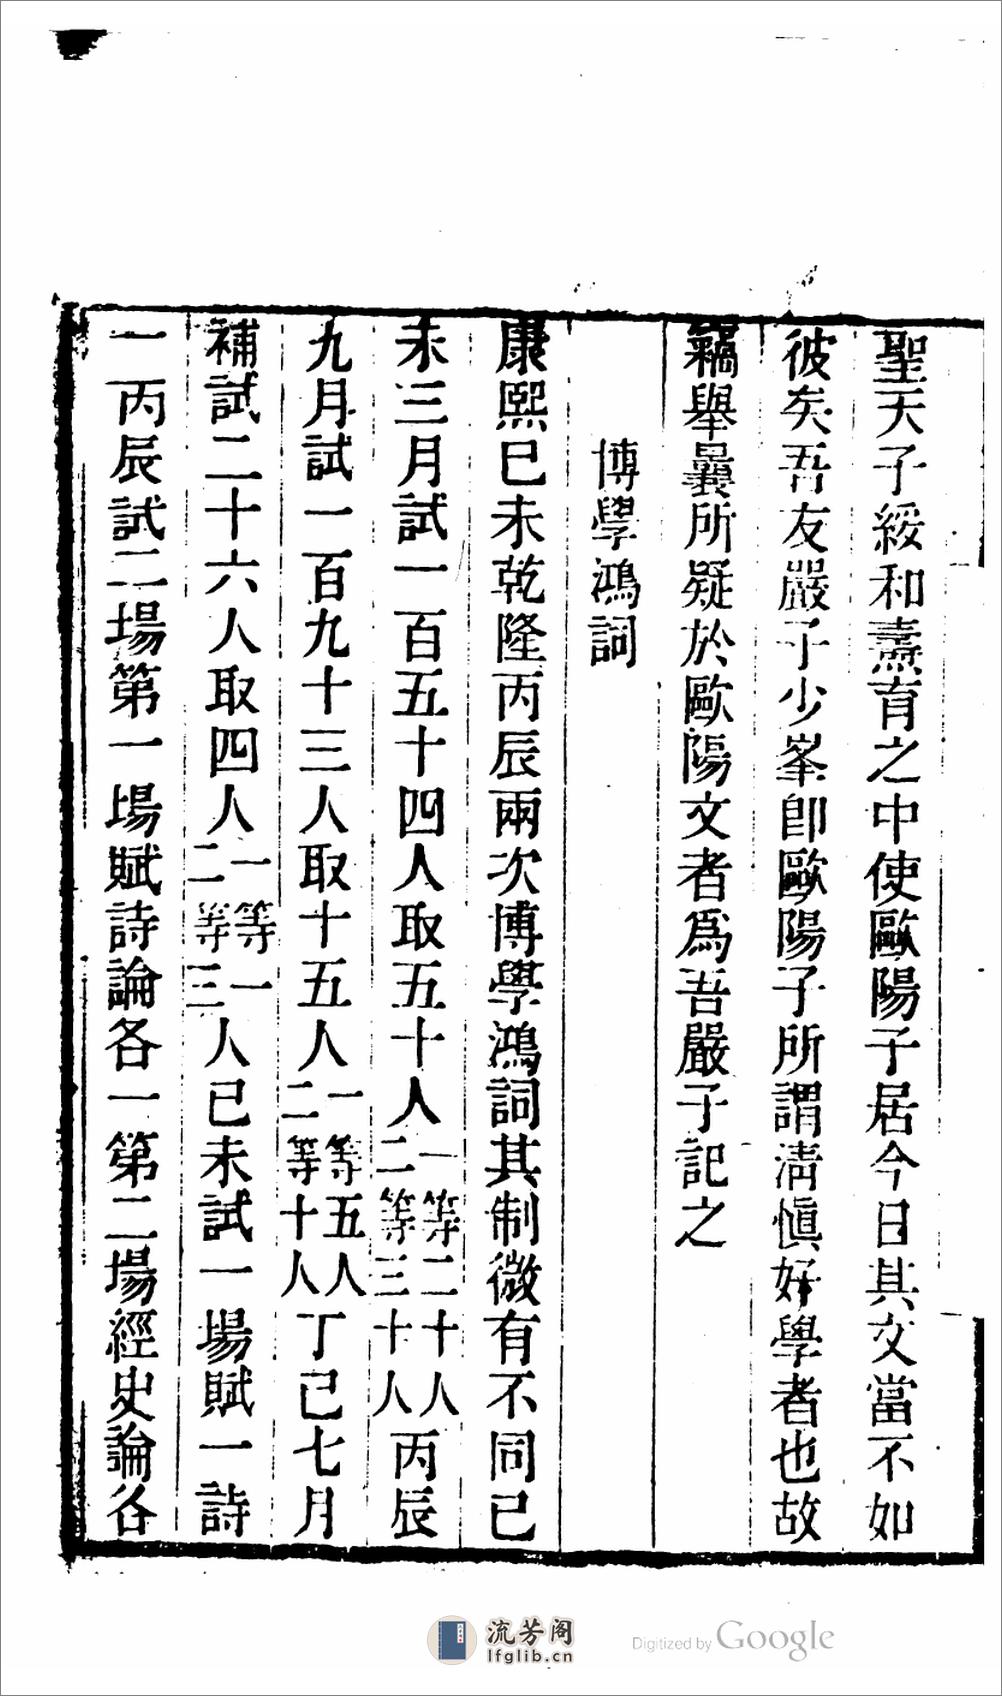 聖天子綏和燾育之中使歐陽子居今日其文當不如
彼矣吾友嚴子少峯卽歐陽子所謂淸愼好學者也故
竊舉曩所疑於歐陽文者爲吾嚴子記之
博學鴻詞
康熙巳未乾隆丙辰兩次博學鴻詞其制微有不同巳
未三月試一百五十四人取五十人一等二十人二等三十人丙辰
九月試一百九十三人取十五人一等五人二等十人丁已七月
補試二十六人取四人一等一二等三人已未試一場賦一詩
一丙辰試二場第一場賦詩論各一第二場經史論各
流芳阁
lfglib.cn
Digitized by Google